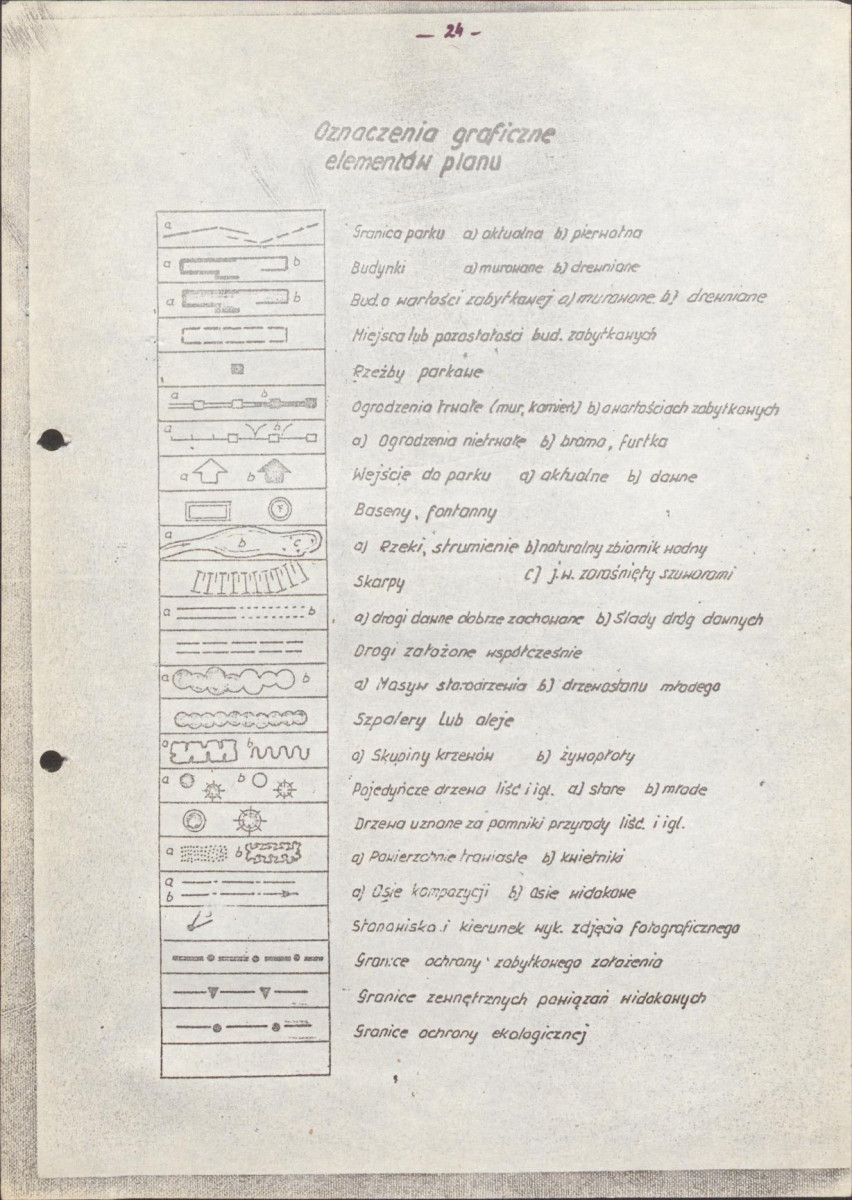 — 24 -
Oznaczenia graficzne
elementów planu
a
Granica parku a) aktualna b) pierwotna
a b
Budynki a) murowane b) drewniane
a b
Bud. o wartości zabytkowej a) murowane b) drewniane
Miejsca lub pozostałości bud. zabytkowych
Rzeźby parkowe
a b
Ogrodzenia trwałe (mur, kamień) b) o wartościach zabytkowych
a b
a) Ogrodzenia nietrwałe b) brama, furtka
a b
Wejście do parku a) aktualne b) dawne
Baseny, fontanny
a b c
a) Rzeki, strumienie b) naturalny zbiornik wodny
c) j.w. zarośnięty szuwarami
Skarpy
a b
a) drogi dawne dobrze zachowane b) Ślady dróg dawnych
Drogi założone współcześnie
a b
a) Masyw starodrzewia b) drzewostanu młodego
Szpalery lub aleje
a b
a) Skupiny krzewów b) żywopłoty
a b
Pojedyńcze drzewa liść i igl. a) stare b) młode
Drzewa uznane za pomniki przyrody liść. i igl.
a b
a) Powierzchnie trawiaste b) kwietniki
a
b
a) Osie kompozycji b) Osie widokowe
Stanowiska i kierunek wyk. zdjęcia fotograficznego
Granice ochrony zabytkowego założenia
Granice zewnętrznych powiązań widokowych
Granice ochrony ekologicznej